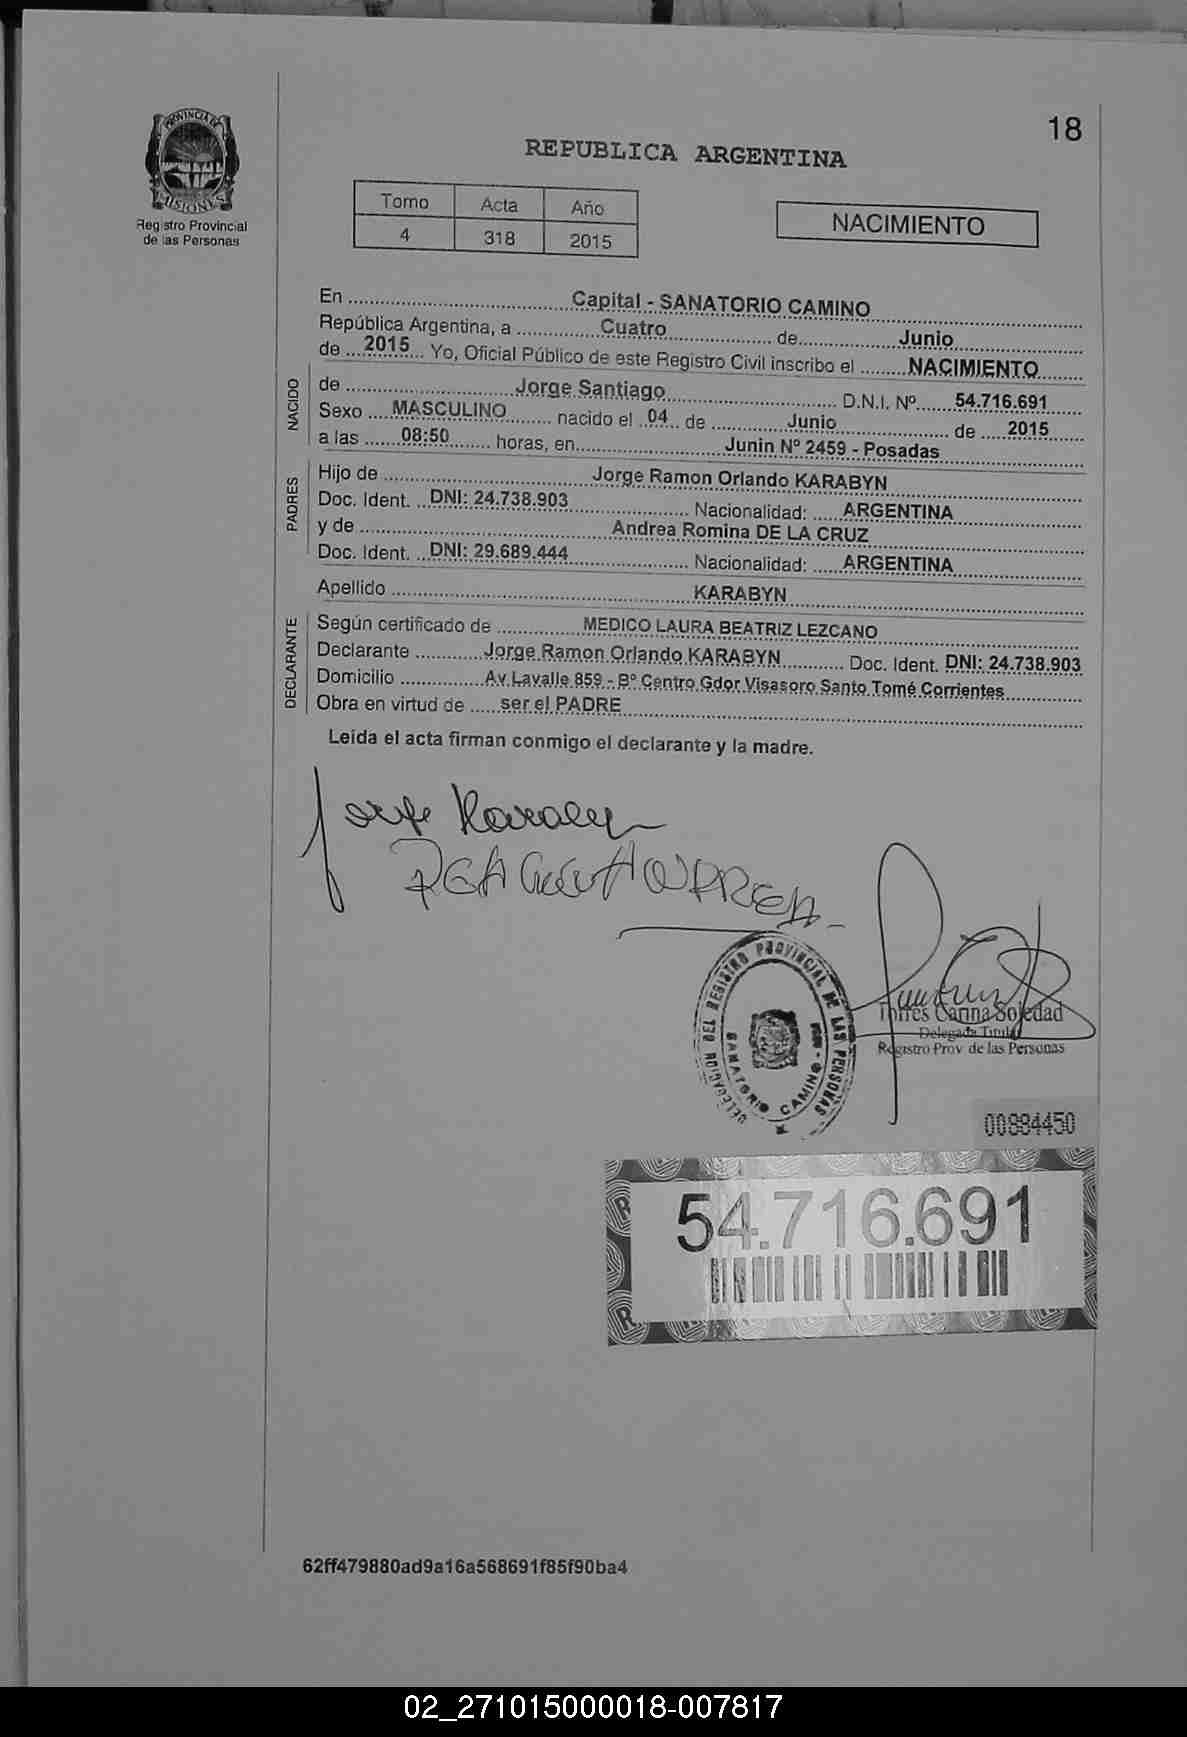 18
PROVINCIA DE
MISIONES
Registro Provincial
de las Personas
REPUBLICA ARGENTINA
Tomo Acta Año
4 318 2015
NACIMIENTO
En Capital - SANATORIO CAMINO
República Argentina, a Cuatro de Junio
de 2015 Yo, Oficial Público de este Registro Civil inscribo el NACIMIENTO
NACIDO
de Jorge Santiago D.N.I. Nº 54.716.691
Sexo MASCULINO nacido el 04 de Junio de 2015
a las 08:50 horas, en Junin Nº 2459 - Posadas
PADRES
Hijo de Jorge Ramon Orlando KARABYN
Doc. Ident. DNI: 24.738.903 Nacionalidad: ARGENTINA
y de Andrea Romina DE LA CRUZ
Doc. Ident. DNI: 29.689.444 Nacionalidad: ARGENTINA
Apellido KARABYN
DECLARANTE
Según certificado de MEDICO LAURA BEATRIZ LEZCANO
Declarante Jorge Ramon Orlando KARABYN Doc. Ident. DNI: 24.738.903
Domicilio Av Lavalle 859 - Bº Centro Gdor Visasoro Santo Tomé Corrientes
Obra en virtud de ser el PADRE
Leida el acta firman conmigo el declarante y la madre.
Jorge Karabyn
DELEGACION DEL REGISTRO PROVINCIAL DE LAS PERSONAS
SANATORIO CAMINO
Torres Carina Soledad
Delegada Titular
Registro Prov de las Personas
00984450
54.716.691
62ff479880ad9a16a568691f85f90ba4
02_271015000018-007817